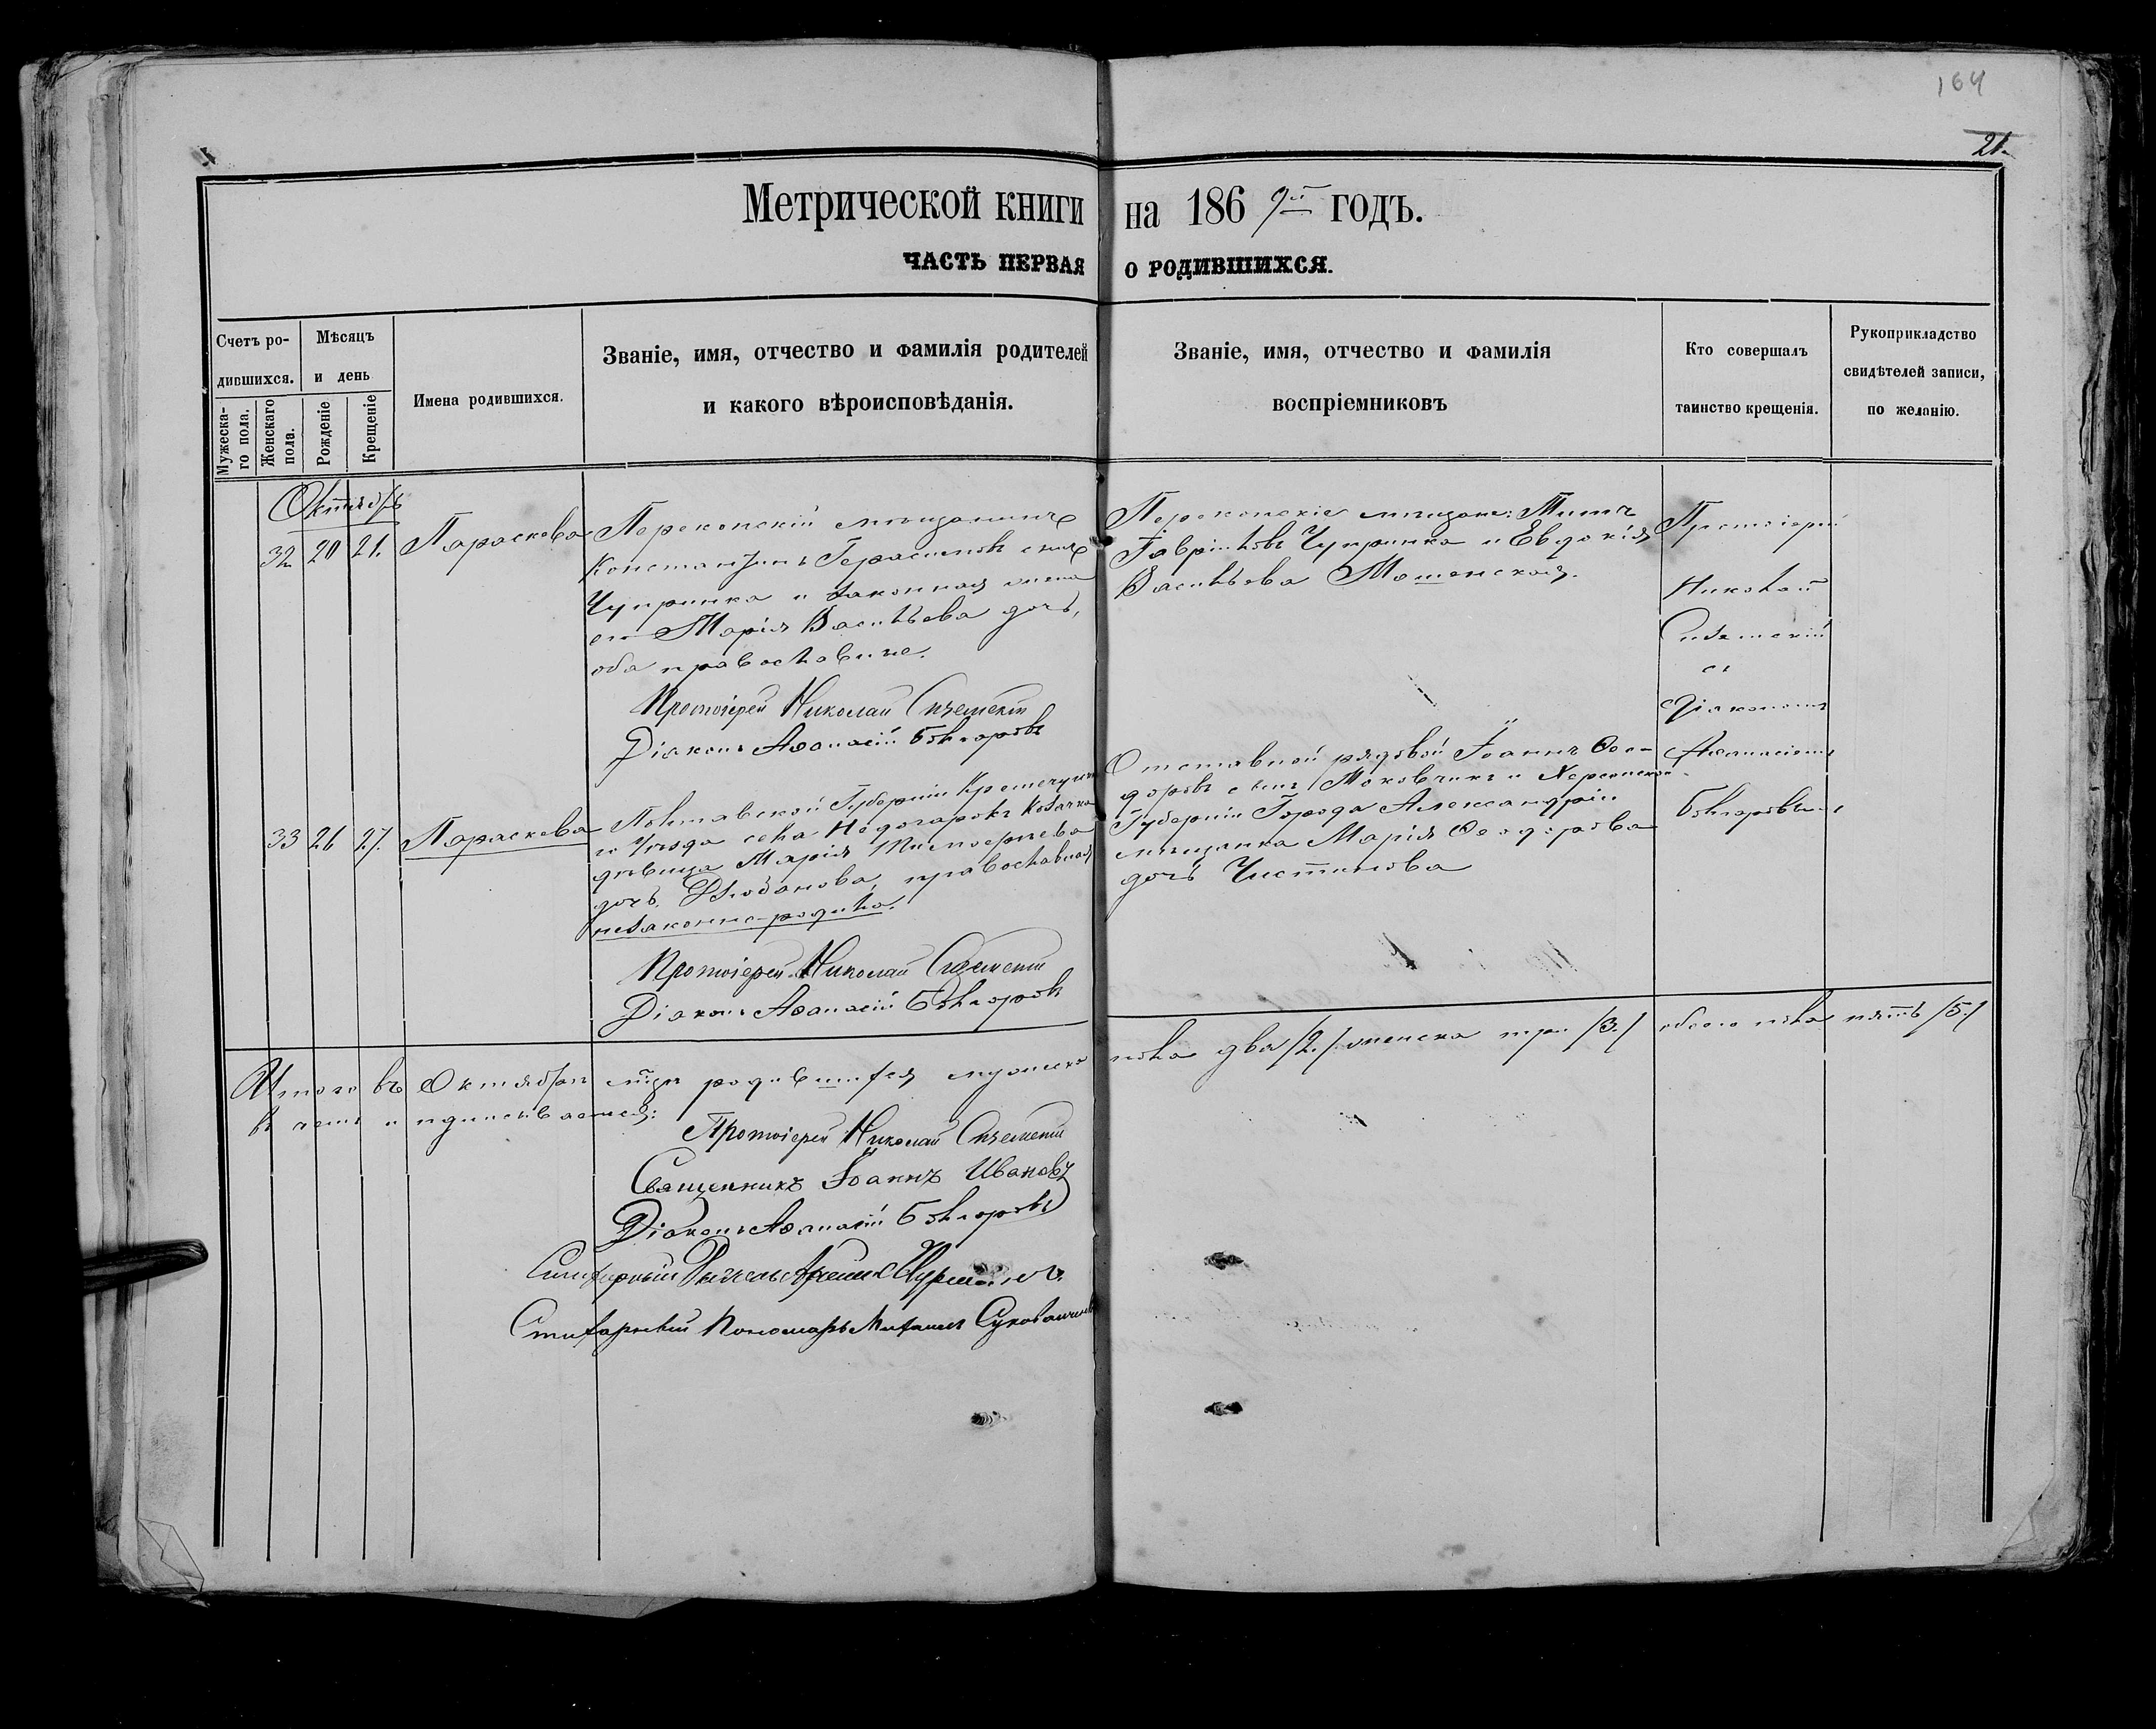 164
21.
Метрической книги на 186 9й годъ.
ЧАСТЬ ПЕРВАЯ О РОДИВШИХСЯ.
Счетъ ро-
дившихся.
Мѣсяцъ
и день
Мужеска-
го пола.
Женскаго
пола.
Рожденіе
Крещеніе
Имена родившихся.
Званіе, имя, отчество и фамилія родителей
и какого вѣроисповѣданія.
Званіе, имя, отчество и фамилія
воспріемниковъ
Кто совершалъ
таинство крещенія.
Рукоприкладство
свидѣтелей записи,
по желанію.
Октябрь
32 20 21. Параскева
Перекопскій мѣщанинъ
Константинъ Герасимовъ сынъ
Чупринка и законная жена
его Марія Васильева дочь,
оба православные.
Протоіерей Николай
Діаконъ Аѳанасій Болгаровъ
Перекопскіе мѣщане: Титъ
Гавріиловъ Чупринка и Евдокія
Васильева Мошенская.
Протоіерей
Николай
съ
Діакономъ
Аѳанасіемъ
Болгаровымъ
33 26 27. Параскева
Полтавской Губерніи Кременчуг
го Уѣзда села Недогарокъ козачка
дѣвица Марія Тимоѳеева
дочь, православная
незаконно-родила.
Протоіерей Николай
Діаконъ Аѳанасій Болгаровъ
Отставной рядовой Іоаннъ Ѳео-
доровъ сынъ и Херсонской
Губерніи Города Александріи
мѣщанка Марія Ѳеодорова
дочь
Итого въ Октябрѣ м‑цѣ родившихся мужеска пола два /2./ женска три /3./ обоего пола пять /5./
въ чемъ и подписываемся:
Протоіерей Николай
Священникъ Іоаннъ Ивановъ
Діаконъ Аѳанасій Болгаровъ
Стихарный
Стихарный Пономарь Михаилъ